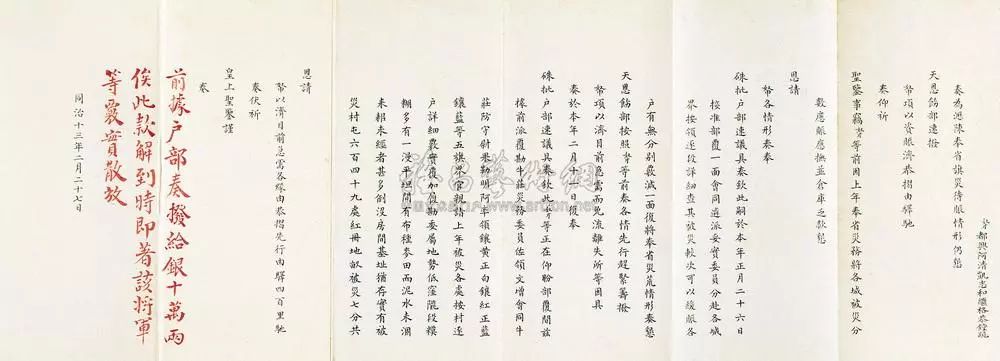 奴才都興阿清凱志和繼格恭鏜跪
奏為瀝陳奉省旗災待賑情形仍懇
天恩飭部速撥
帑項以資賑濟恭摺由驛馳
奏仰祈
聖鑒事竊奴才等前因上年奉省災務將各城被災分
數應賑應撫並倉庫之款懇
恩請
帑各情形奏奉
硃批户部速議具奏欽此嗣於本年正月二十六日
接准部覆一面會同遴派妥實委員分赴各城
界按領逐段詳細查其被災較次可以緩賑各
户有無分别覈減一面復將奉省災荒情形奏懇
天恩飭部按照奴才等前奏各情先行趕緊籌撥
帑項以濟目前急需而免流離失所等因具
奏於本年二月十八日復奉
硃批户部速議具奏欽此奴才等正在仰盼部覆間茲
據前派覆勘牛莊災務委員佐領文增會同牛
莊防守尉果勒明阿率領鑲黃正白鑲紅正藍
鑲藍等五旗界官親詣上年被災各處按村逐
户詳細覈實覆加履勘委屬地勢低窪隴段模
糊多有一漫平坦間有布種麥田而泥水未涸
未耕未經者甚多創沒房間基址猶存實有被
災村屯六百四十九處紅冊地畝被災七分共
恩請
帑以濟目前急需各緣由恭摺先行由驛四百里馳
奏伏祈
皇上聖鑒謹
奏
前據户部奏撥給銀十萬兩
俟此款解到時即著該將軍
等覈實散放
同治十三年二月二十七日